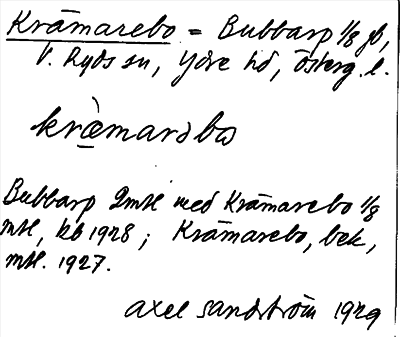 Krämarebo = Bubbarp 1/8 gb,
V. Ryds sn, Ydre hd, Österg. l.
kræ̀marəbω
Bubbarp 2mtl med Krämarebo 1/8
mtl, kb 1928; Krämarebo, bek,
mtl. 1927.
Axel Sandström 1929